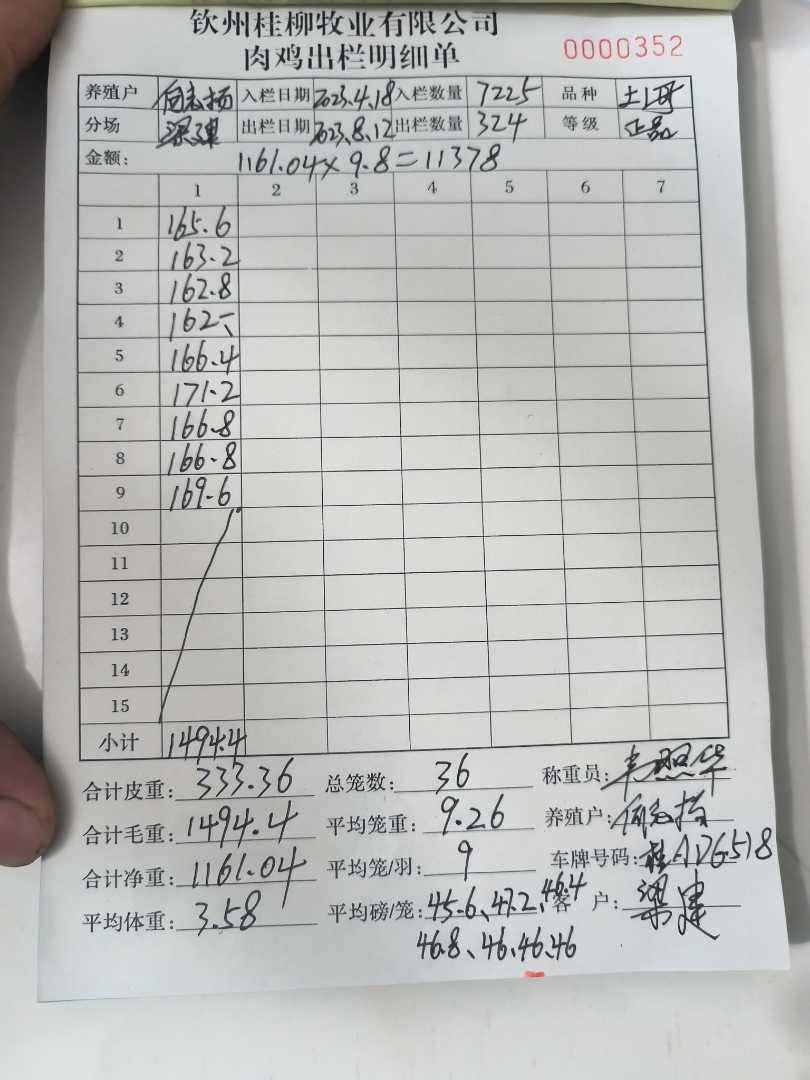 钦州桂柳牧业有限公司
肉鸡出栏明细单 0000352
养殖户 入栏日期 2023.4.18 入栏数量 7225 品种 土2
分场 梁建 出栏日期 2023.8.12 出栏数量 324 等级 正品
金额: 1161.04×9.8=11378
1 2 3 4 5 6 7
1 165.6
2 163.2
3 162.8
4 162
5 166.4
6 171.2
7 166.8
8 166.8
9 169.6
10
11
12
13
14
15
小计 1494.4
合计皮重: 333.36 总笼数: 36 称重员: 韦照华
合计毛重: 1494.4 平均笼重: 9.26 养殖户:
合计净重: 1161.04 平均笼/羽: 9 车牌号码: 桂AD6518
平均体重: 3.58 平均磅/笼: 45.6、47.2、46.4 客 户: 梁建
46.8、46、46、46